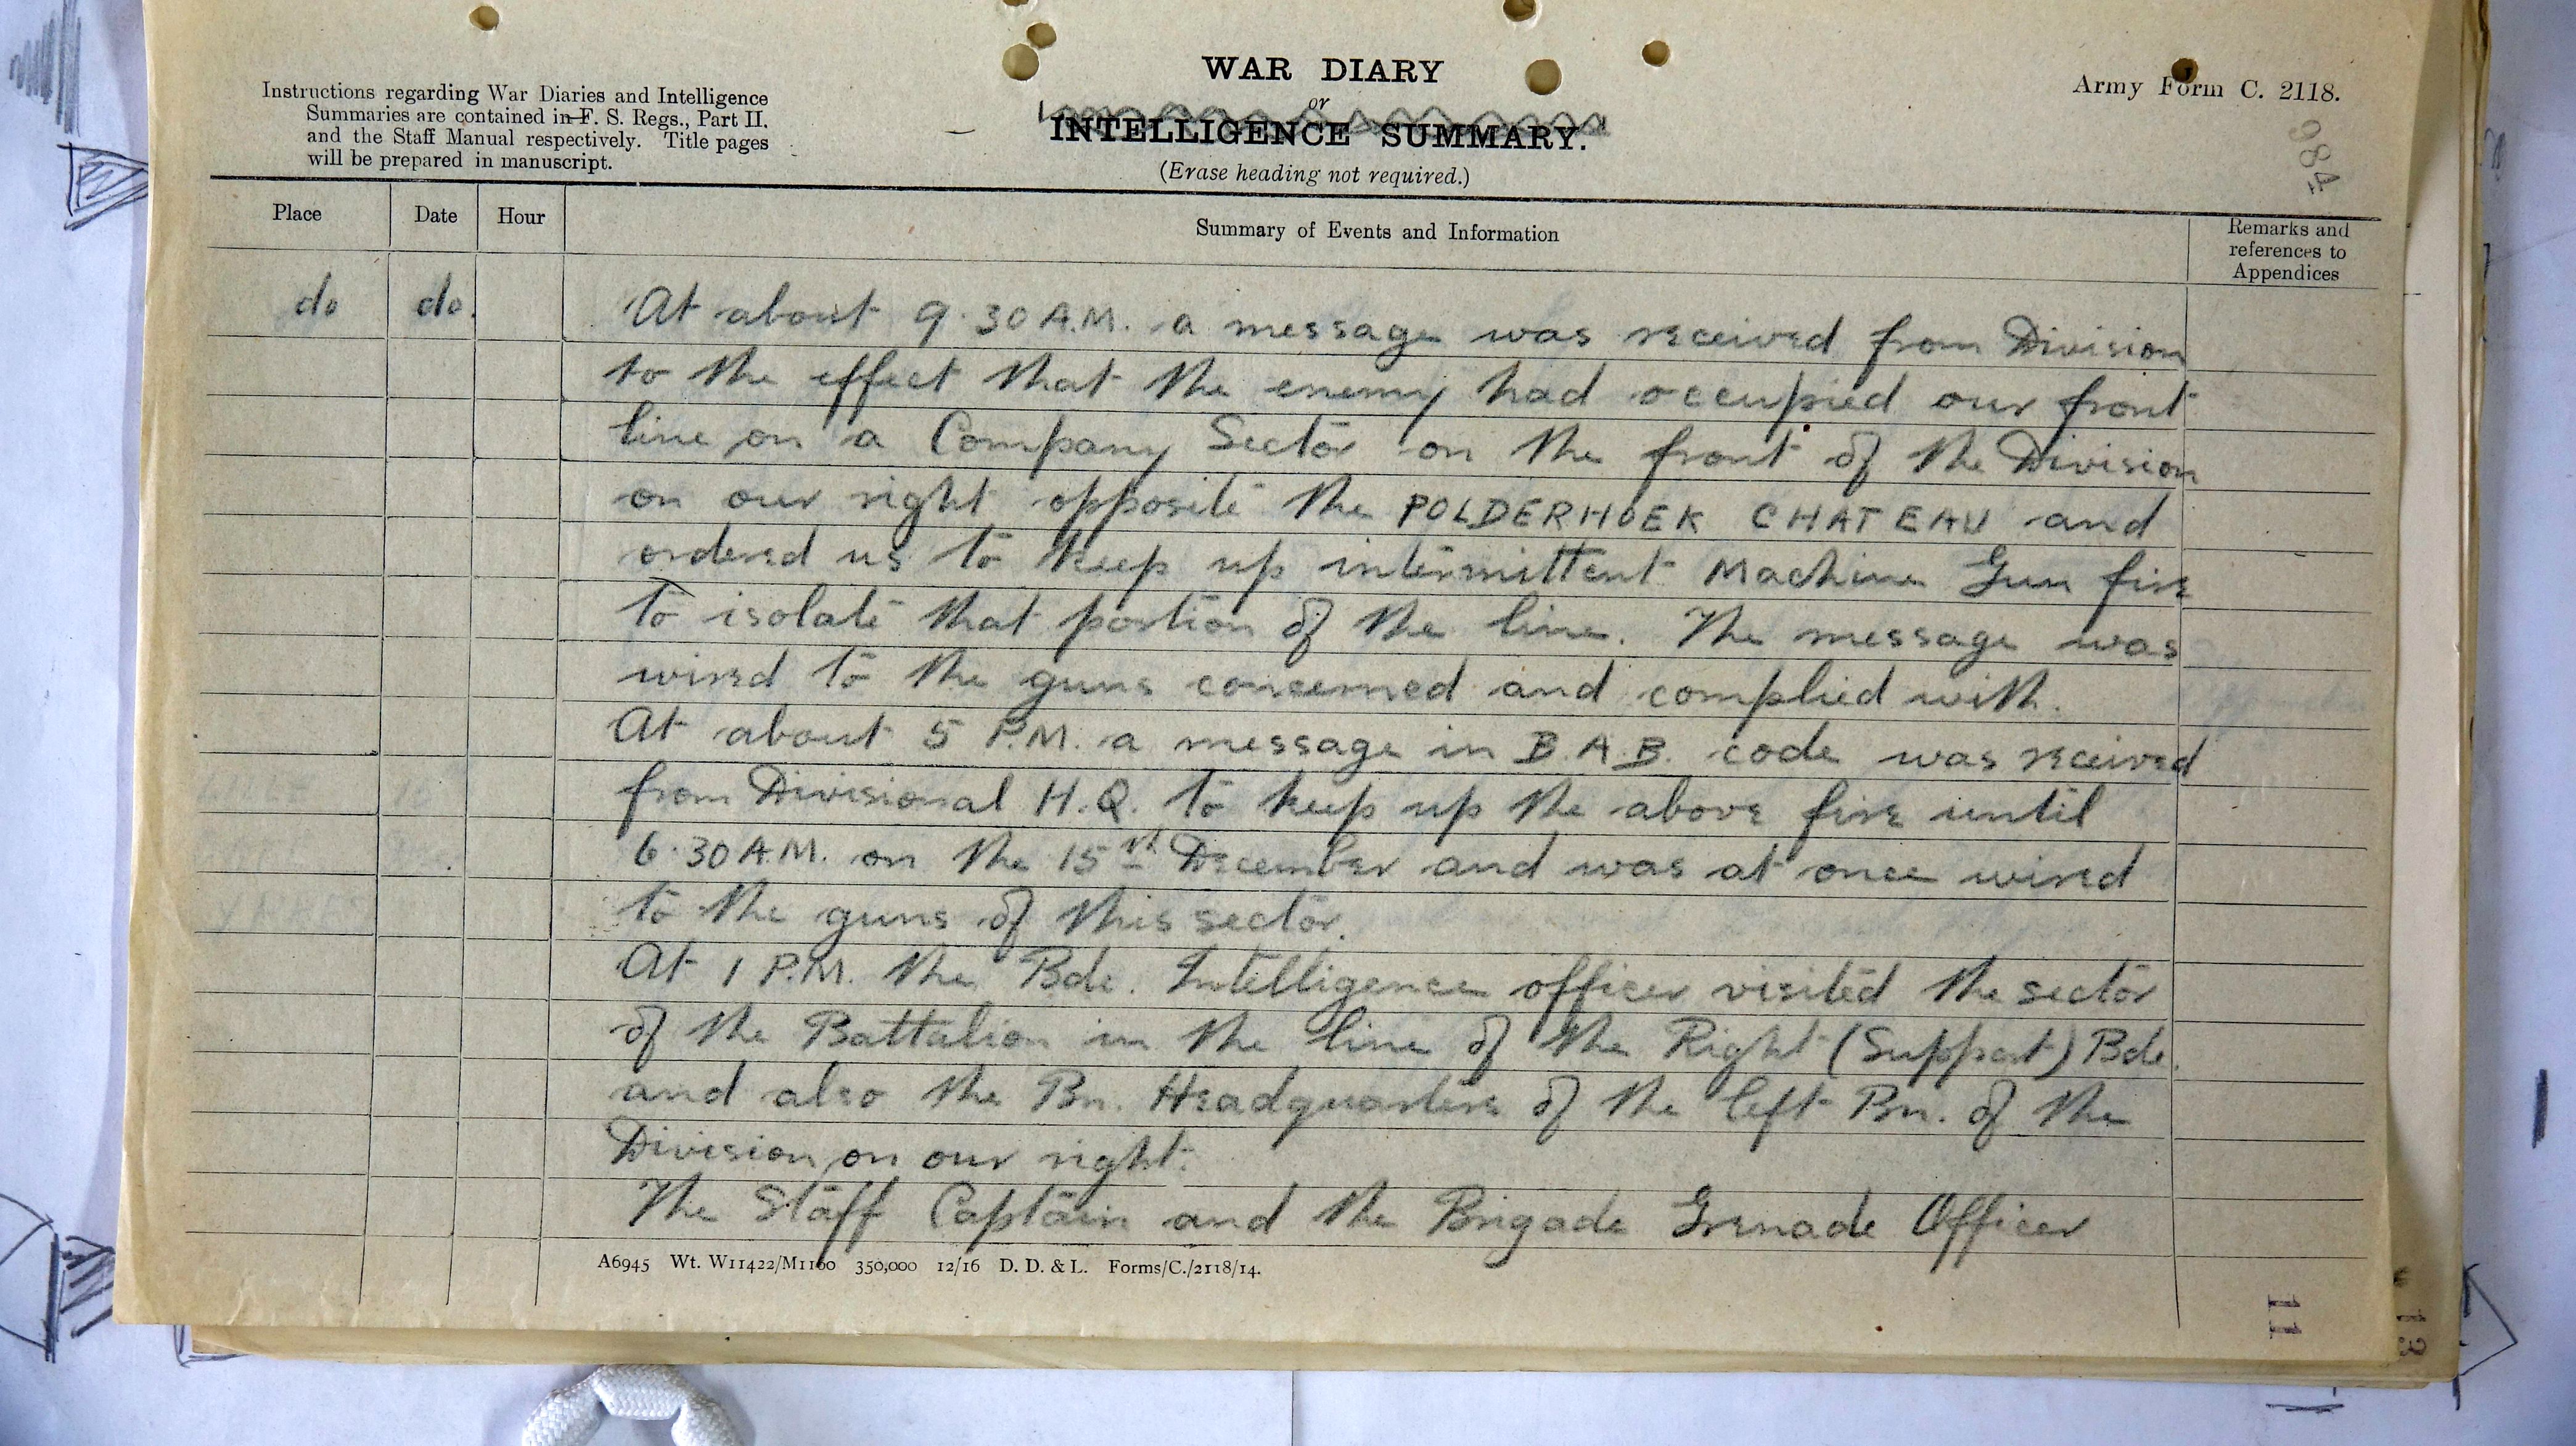 Instructions regarding War Diaries and Intelligence
Summaries are contained in F. S. Regs., Part II.
and the Staff Manual respectively. Title pages
will be prepared in manuscript.
WAR DIARY
or
INTELLIGENCE SUMMARY.
(Erase heading not required.)
Army Form C. 2118.
984
Place Date Hour Summary of Events and Information Remarks and references to Appendices
do do. At about 9.30 A.M. a message was received from Division
to the effect that the enemy had occupied our front
line on a Company Sector on the front of the Division
on our right opposite the POLDERHOEK CHATEAU and
ordered us to keep up intermittent Machine Gun fire
to isolate that portion of the line. The message was
wired to the guns concerned and complied with.
At about 5 P.M. a message in B.A.B. code was received
from Divisional H.Q. to keep up the above fire until
6.30 A.M. on the 15th December and was at once wired
to the guns of this sector.
At 1 P.M. the Bde. Intelligence officer visited the sector
of the Battalion in the line of the Right (Support) Bde.
and also the Bn. Headquarters of the left Bn. of the
Division on our right.
The Staff Captain and the Brigade Grenade Officer
A6945 Wt. W11422/M1160 350,000 12/16 D. D. & L. Forms/C./2118/14.
11
13